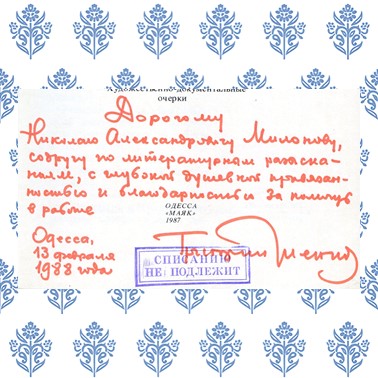 Художественно-документальные
очерки
Дорогому
Николаю Александровичу Милонову,
содругу по литературном разыска-
ниям, с глубокой душевной привязан-
ностью и благодарностью за помощь
в работе
ОДЕССА
«МАЯК»
1987
Одесса,
13 февраля
1988 года
СПИСАНИЮ
НЕ ПОДЛЕЖИТ